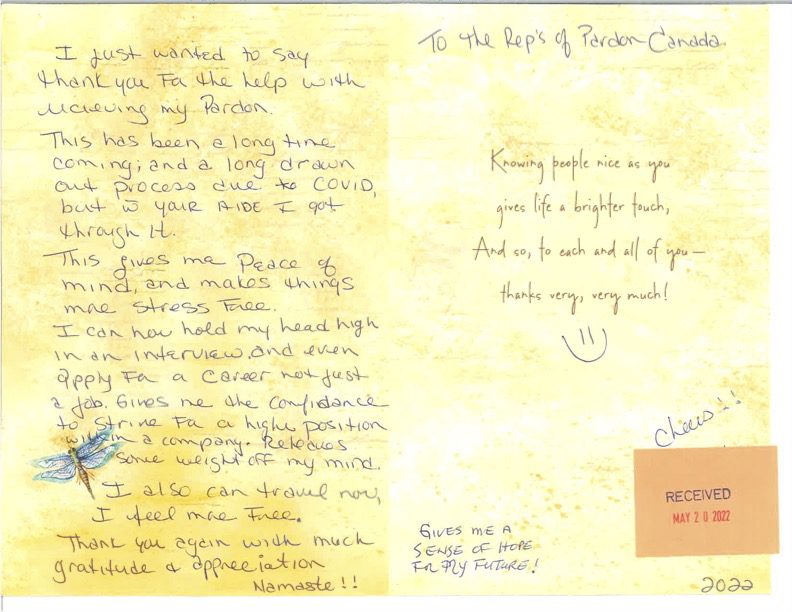 I just wanted to say
thank you Fa the help with
recieving my Pardon.
This has been a long time
coming; and a long drawn
out process due to COVID,
but w̄ your AIDE I got
through it.
This gives me Peace of
mind, and makes things
more stress Free.
I can now hold my head high
in an interview, and even
apply For a Career not just
a job. Gives me the confidance
to strive For a higher position
within a company. Releaves
some weight off my mind.
I also can travel now,
I feel more Free.
Thank you again with much
gratitude & appreciation
Namaste!!
To the Rep's of Pardon Canada.
Knowing people nice as you
gives life a brighter touch,
And so, to each and all of you—
thanks very, very much!
Cheers!!
RECEIVED
MAY 20 2022
GIVES ME A
SENSE OF HOPE
FOR MY FUTURE!
2022